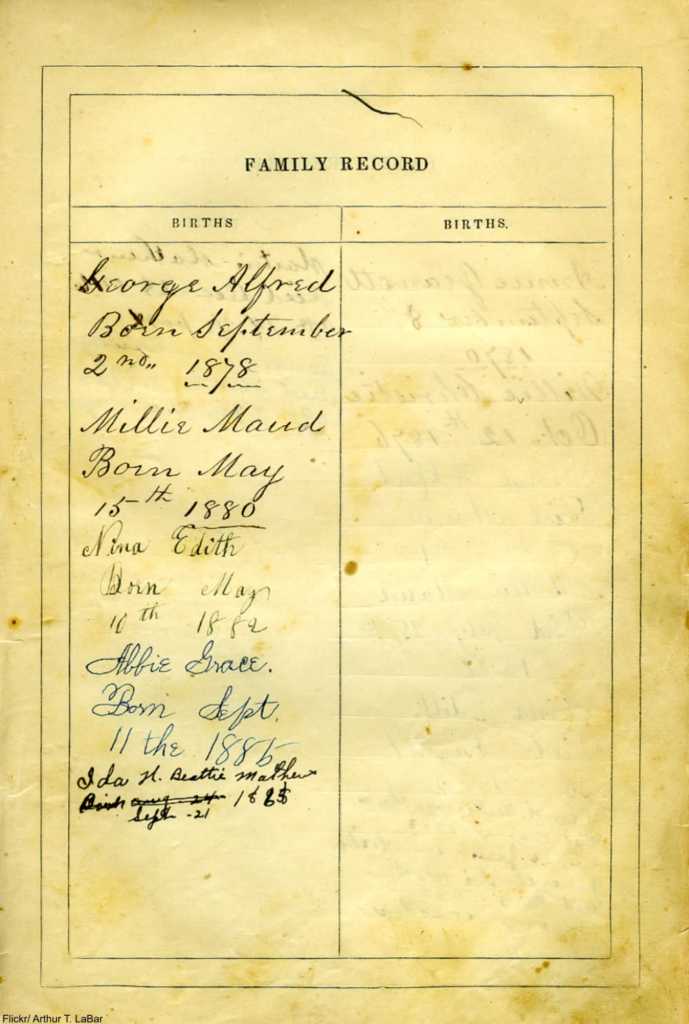 FAMILY RECORD
BIRTHS
BIRTHS.
George Alfred
Born September
2nd,, 1878
Millie Maud
Born May
15th 1880
Nina Edith
Born May
10th 1882
Abbie Grace.
Born Sept.
11 the 1885
Ida H. Beattie Mathews
Birth aug. 24 1885
Sept -21
Flickr/ Arthur T. LaBar